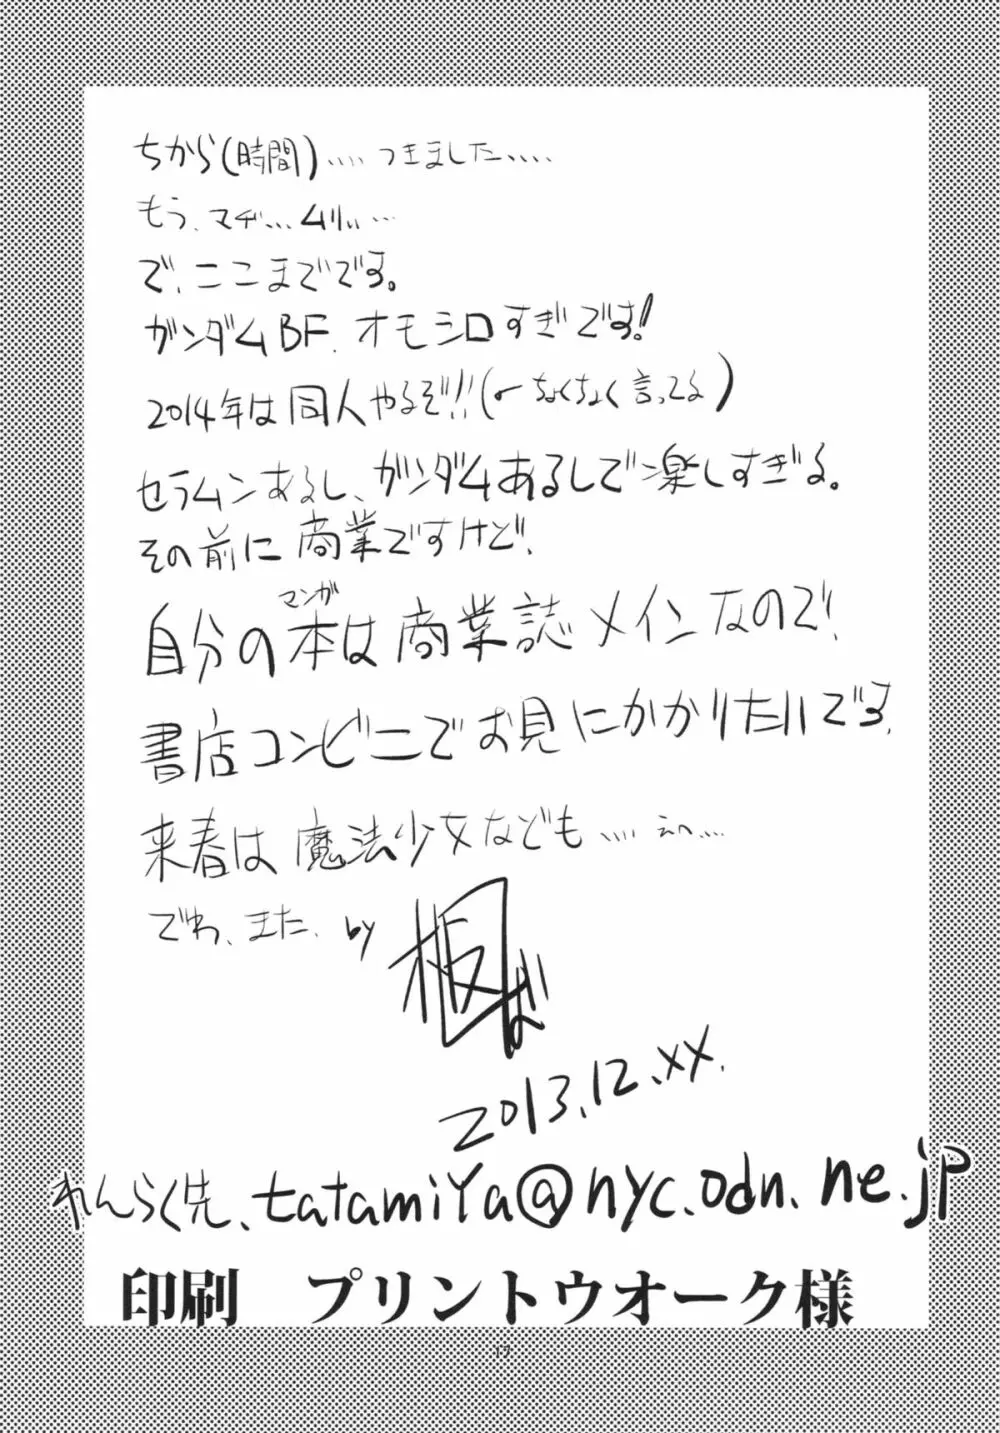 ちから(時間)‥‥つきました‥‥
もう、マヂ…ムリぃ…
で、ここまでです。
ガンダムBF、オモシロすぎです!
2014年は同人やるぞ!!(←ちょくちょく言ってる)
セラムンあるし、ガンダムあるしで楽しすぎる。
その前に商業ですけど!
マンガ
自分の本は商業誌メインなので!
書店コンビニでお見にかかりたいです。
来春は魔法少女なども‥‥えへ‥‥
でわ、また、by
2013.12.XX.
れんらく先、tatamiya@nyc.odn.ne.jp
印刷 プリントウオーク様
17